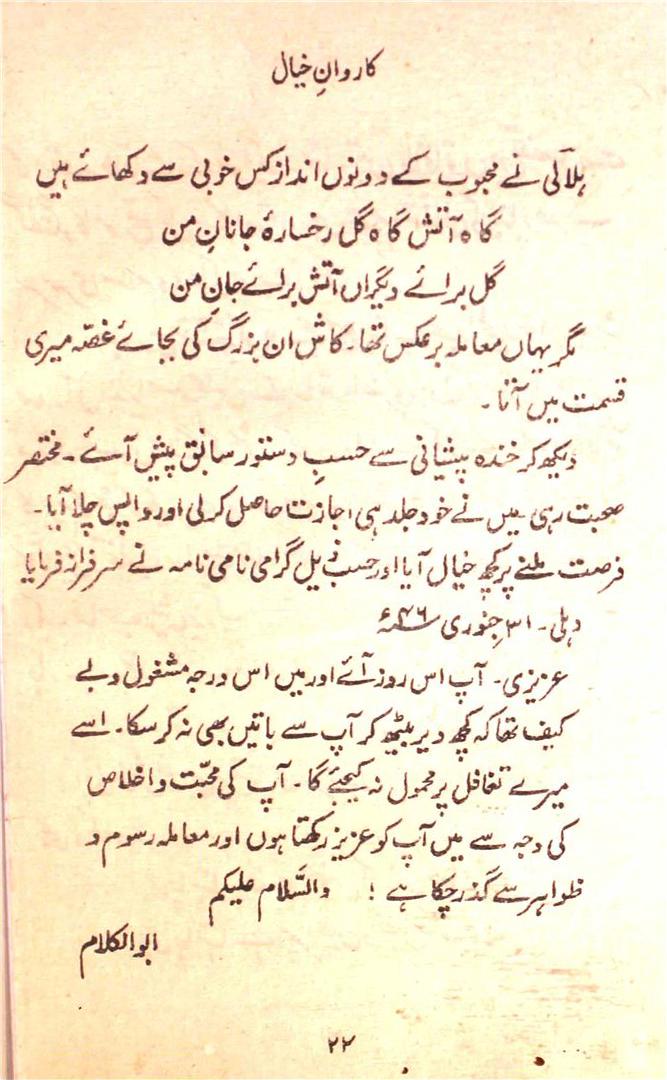 کاروانِ خیال
ہلالؔی نے محبوب کے دونوں انداز کس خوبی سے دکھائے ہیں
گاہ آتش گاہ گل رخسارۂ جانانِ من
گل برائے دیگراں آتش برائے جانِ من
مگر یہاں معاملہ برعکس تھا۔ کاش ان بزرگ کی بجائے غصّہ میری
قسمت میں آتا۔
دیکھ کر خندہ پیشانی سے حسبِ دستور سابق پیش آئے۔ مختصر
صحبت رہی میں نے خود جلد ہی اجازت حاصل کرلی اور واپس چلا آیا۔
فرصت ملنے پر کچھ خیال آیا اور حسب ذیل گرامی نامی نامہ نے سرفراز فرمایا
دہلی۔ ۳۱ جنوری ۴۶ء
عزیزی۔ آپ اس روز آئے اور میں اس درجہ مشغول و بے
کیف تھا کہ کچھ دیر بیٹھ کر آپ سے باتیں بھی نہ کرسکا۔ اسے
میرے تغافل پر محمول نہ کیجئے گا۔ آپ کی محبّت و اخلاص
کی وجہ سے میں آپ کو عزیز رکھتا ہوں اور معاملہ رسوم و
ظواہر سے گذر چکا ہے ! والسَّلام علیکم
ابوالکلام
۲۲